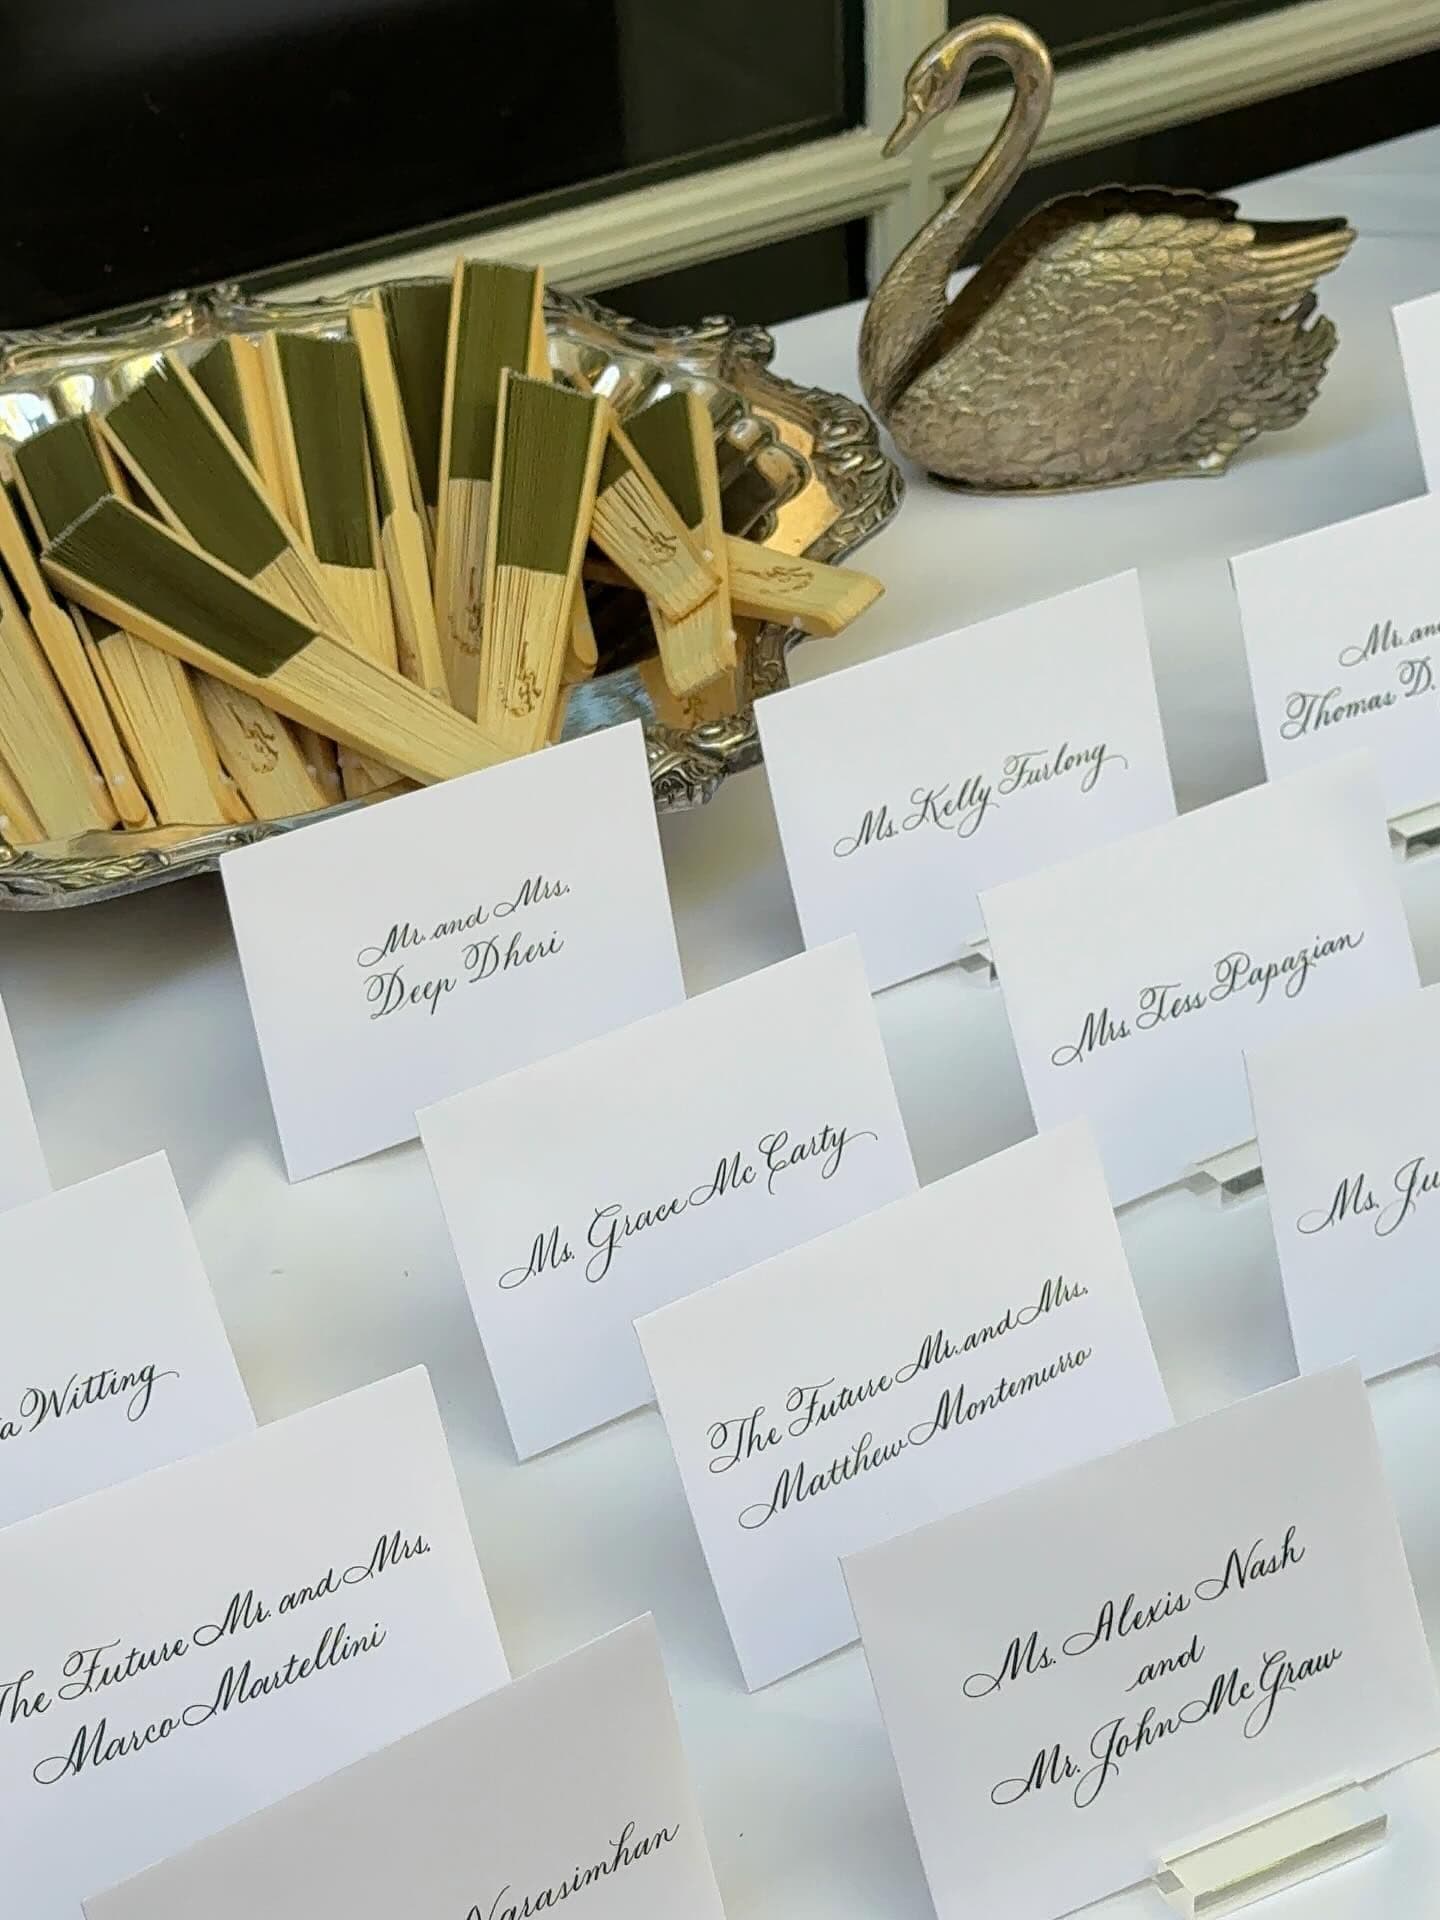 Mr. and
Thomas D.
Ms. Kelly Furlong
Mr. and Mrs.
Deep Dheri
Mrs. Tess Papazian
Ms. Grace McCarty
Ms.
The Future Mr. and Mrs.
Matthew Montemurro
Witting
The Future Mr. and Mrs.
Marco Martellini
Ms. Alexis Nash
and
Mr. John McGraw
Narasimhan